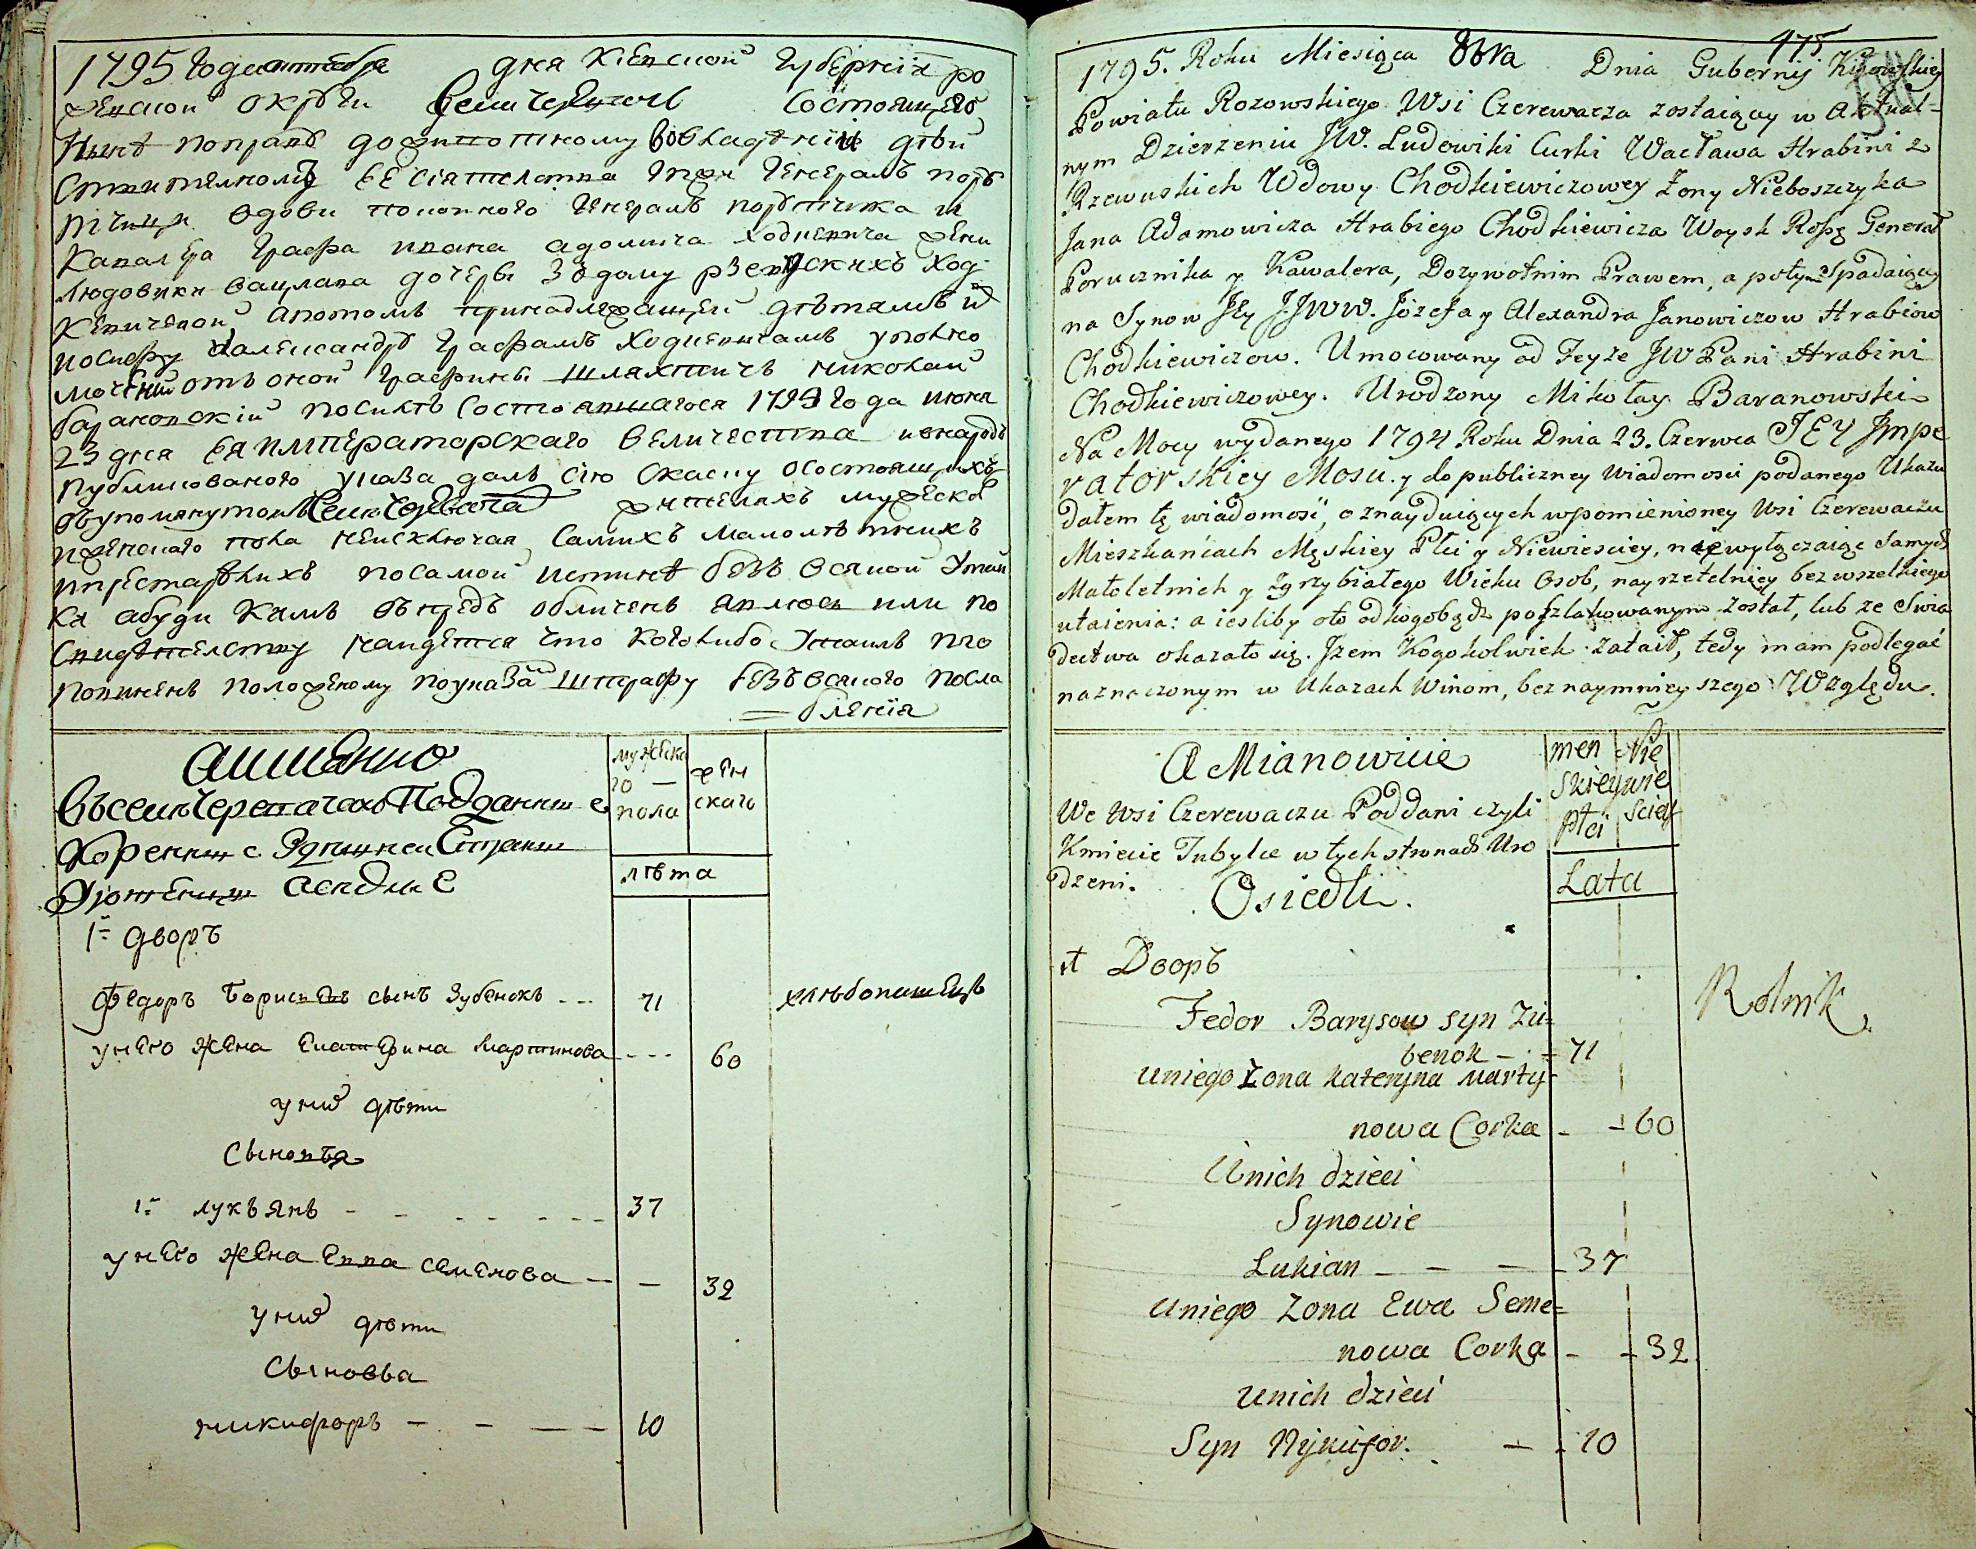 1795 года октебра дня Кіевской губерніи ро
женской округи Сели Черевачъ состоящего
Нинѣ поправѣ дожывотному вовладѣніи дѣй
ствителномъ ее сіятелства Грах Генералъ пору
тчици вдови покоиного Генералъ порутчика и
Кавалера Графа ивана адомича ходкевича жени
Людовики вацлава дочери Зодому ржевускихъ Ход
кевичевой апотомъ принадлежащей дѣтямъ её
иосифу иалександру Графамъ Ходкевичамъ уполно
моченій отъ оной Графини Шляхтичъ николай
барановскій посилѣ состоявшагося 1794 года июня
23 дня ея императорскаго величества инародѣ
публикованого указа далъ сію сказку осостоящихъ
въупомянутомъ Селѣ Черевача жителяхъ мужеска
иженскаго пола неисключая самихъ малолѣтнихъ
ипрестарѣлихъ посамой истинѣ безъ всякой утай
ки абуди камъ въпредъ обличенъ явлюсь или по
свидѣтелству найдется что коголибо утаилъ то
повиненъ положеному поуказа штрафу безъ всякого посла
бленія
аимянно
Въселѣ Черевачахъ Подданни е
Коренни с Здѣшней Страни
Урожении Аседлие
мужеска
го
пола
жен
скаго
лѣта
1й дворъ
Федоръ Борисовъ сынъ Зубенокъ --- 71 хлѣбопашецъ
унего жена Екатерина Мартинова --- 60
уних дѣти
Сыновья
1й лукъянъ - - - - - - - 37
унего жена Евва семенова — — 32
уних дѣти
Сыновья
никифоръ — - — — 10
475
1795. Roku Miesiąca 8bra Dnia Gubernij Kijowskiey
Powiatu Rozowskiego Wsi Czerewacza zostaiący w Aktual-
nym Dzierzeniu JW. Ludowiki Curki Wacława Hrabini z
Rzewuskich Wdowy Chodkiewiczowey Zony Nieboszczyka
Jana Adamowicza Hrabiego Chodkiewicza Woysk Roßy Generał
Porucznika y Kawalera, Dozywotnim Prawem, a potym Spadaiący
na Synow Jey JJWW. Józefa y Alexandra Janowiczow Hrabiow
Chodkiewiczow. Umocowany od Teyże JW Pani Hrabini
Chodkiewiczowey. Urodzony Mikołay Baranowski
Na Mocy wydanego 1794 Roku Dnia 23. Czerwca JEY Jmpe
ratorskiey Mosci. y do publiczney wiadomosci podanego Ukazu
dałem tę wiadomosć, o znayduiących wpomienioney Wsi Czerewaczu
Mieszkańcach Męskiey Płci y Niewiesciey, nie wyłączaiąc Samych
Małoletnich y zgrzybiałego Wieku Osob, nayrzetelniey bez wszelkiego
utaienia: a iesliby oto odkogobądz poszlakowanym został, lub ze Swia
dectwa okazało się. Jzem Kogokolwiek zataił, tedy mam podlegać
naznaczonym w Ukazach Winom, bez naymnieyszego Względu.
A Mianowicie
We Wsi Czerewaczu Poddani czyli
Kmiecie Tubylce w tych stronach Uro
dzeni.
Osiedli.
men
skiey
płci
Nie
wie
sciey
Lata
1 Дворъ
Fedor Barysow syn Zu= Rolnik
benok - - 71
uniego Zona Kateryna Marty=
nowa Corka - - 60
Unich dzieci
Synowie
Lukian - - - - 37
Uniego Zona Ewa Seme=
nowa Corka - - 32
Unich dzieci
Syn Nykifor. — - 10